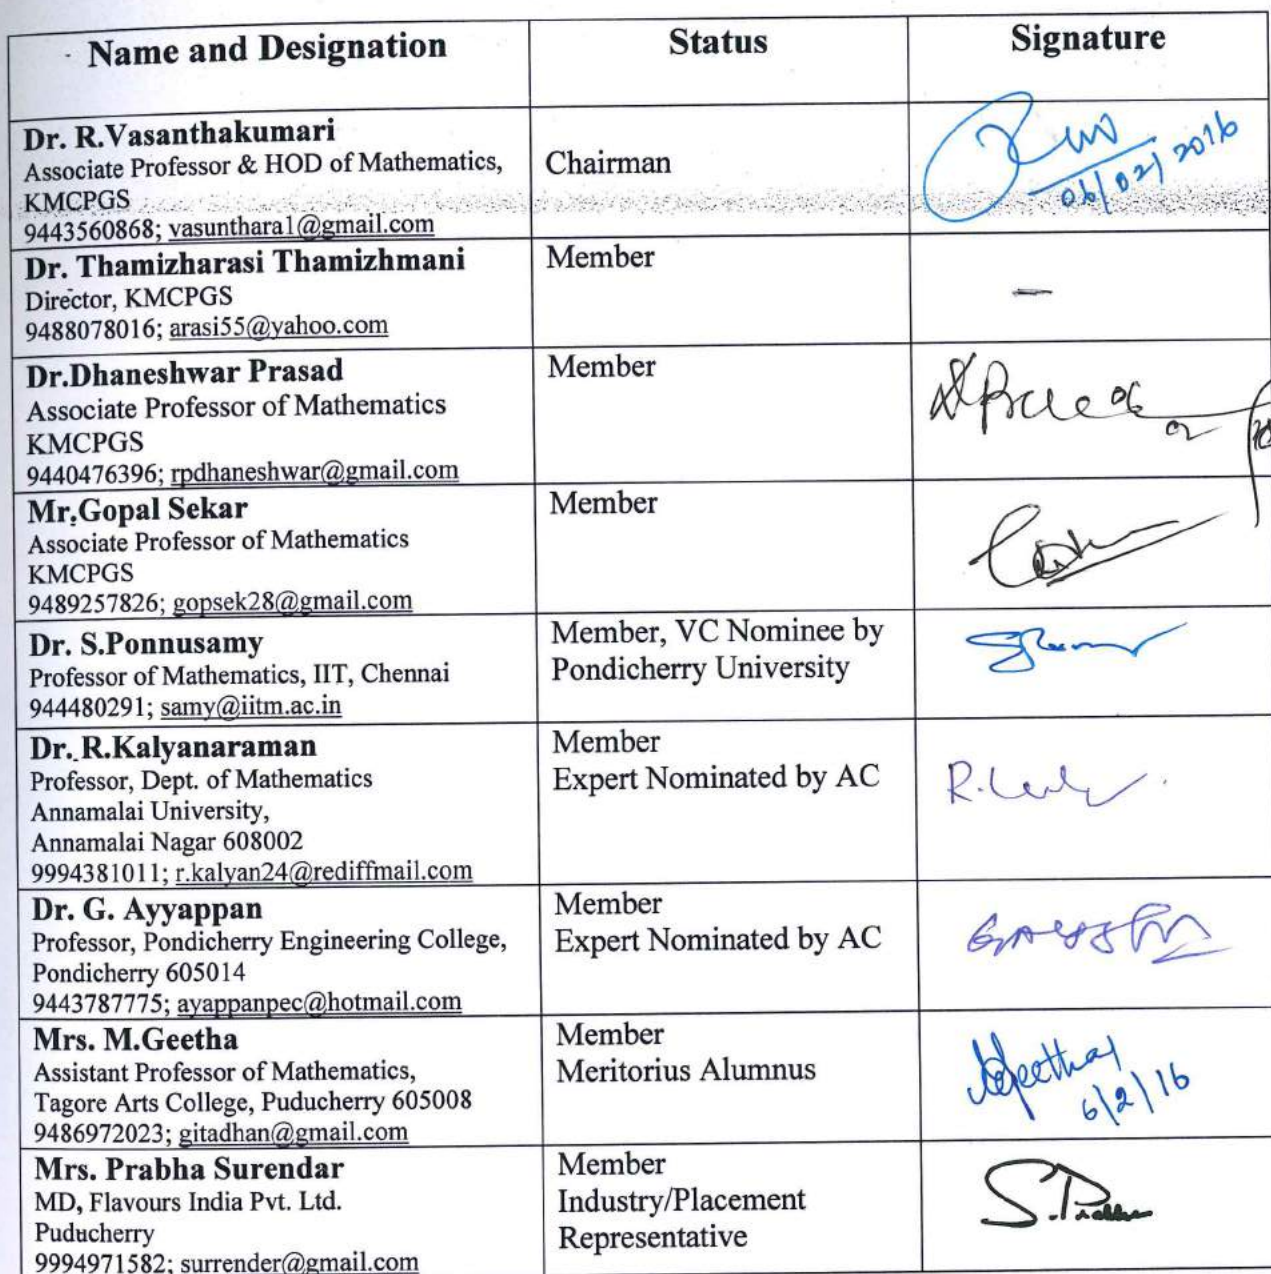 Name and Designation
Status
Signature
Dr. R.Vasanthakumari
Associate Professor & HOD of Mathematics,
KMCPGS
9443560868; vasunthara1@gmail.com
Chairman
06/02/2016
Dr. Thamizharasi Thamizhmani
Director, KMCPGS
9488078016; arasi55@yahoo.com
Member
–
Dr.Dhaneshwar Prasad
Associate Professor of Mathematics
KMCPGS
9440476396; rpdhaneshwar@gmail.com
Member
06
02
Mr.Gopal Sekar
Associate Professor of Mathematics
KMCPGS
9489257826; gopsek28@gmail.com
Member
Dr. S.Ponnusamy
Professor of Mathematics, IIT, Chennai
944480291; samy@iitm.ac.in
Member, VC Nominee by
Pondicherry University
Dr. R.Kalyanaraman
Professor, Dept. of Mathematics
Annamalai University,
Annamalai Nagar 608002
9994381011; r.kalyan24@rediffmail.com
Member
Expert Nominated by AC
Dr. G. Ayyappan
Professor, Pondicherry Engineering College,
Pondicherry 605014
9443787775; ayappanpec@hotmail.com
Member
Expert Nominated by AC
Mrs. M.Geetha
Assistant Professor of Mathematics,
Tagore Arts College, Puducherry 605008
9486972023; gitadhan@gmail.com
Member
Meritorius Alumnus
6/2/16
Mrs. Prabha Surendar
MD, Flavours India Pvt. Ltd.
Puducherry
9994971582; surrender@gmail.com
Member
Industry/Placement
Representative
S.Prabha